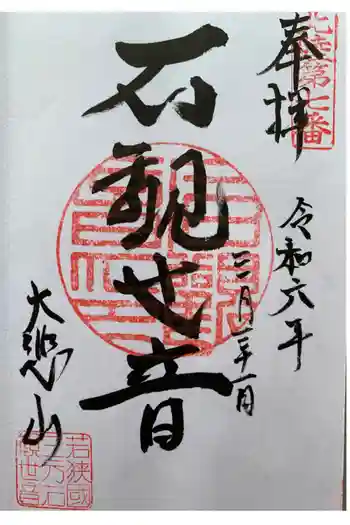 北陸第七番
奉拝
令和六年
三月二十一日
石観世音
大悲山
若狭國
三方石
観世音